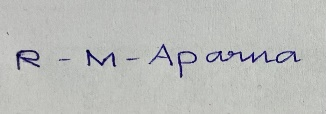 R - M - Aparna